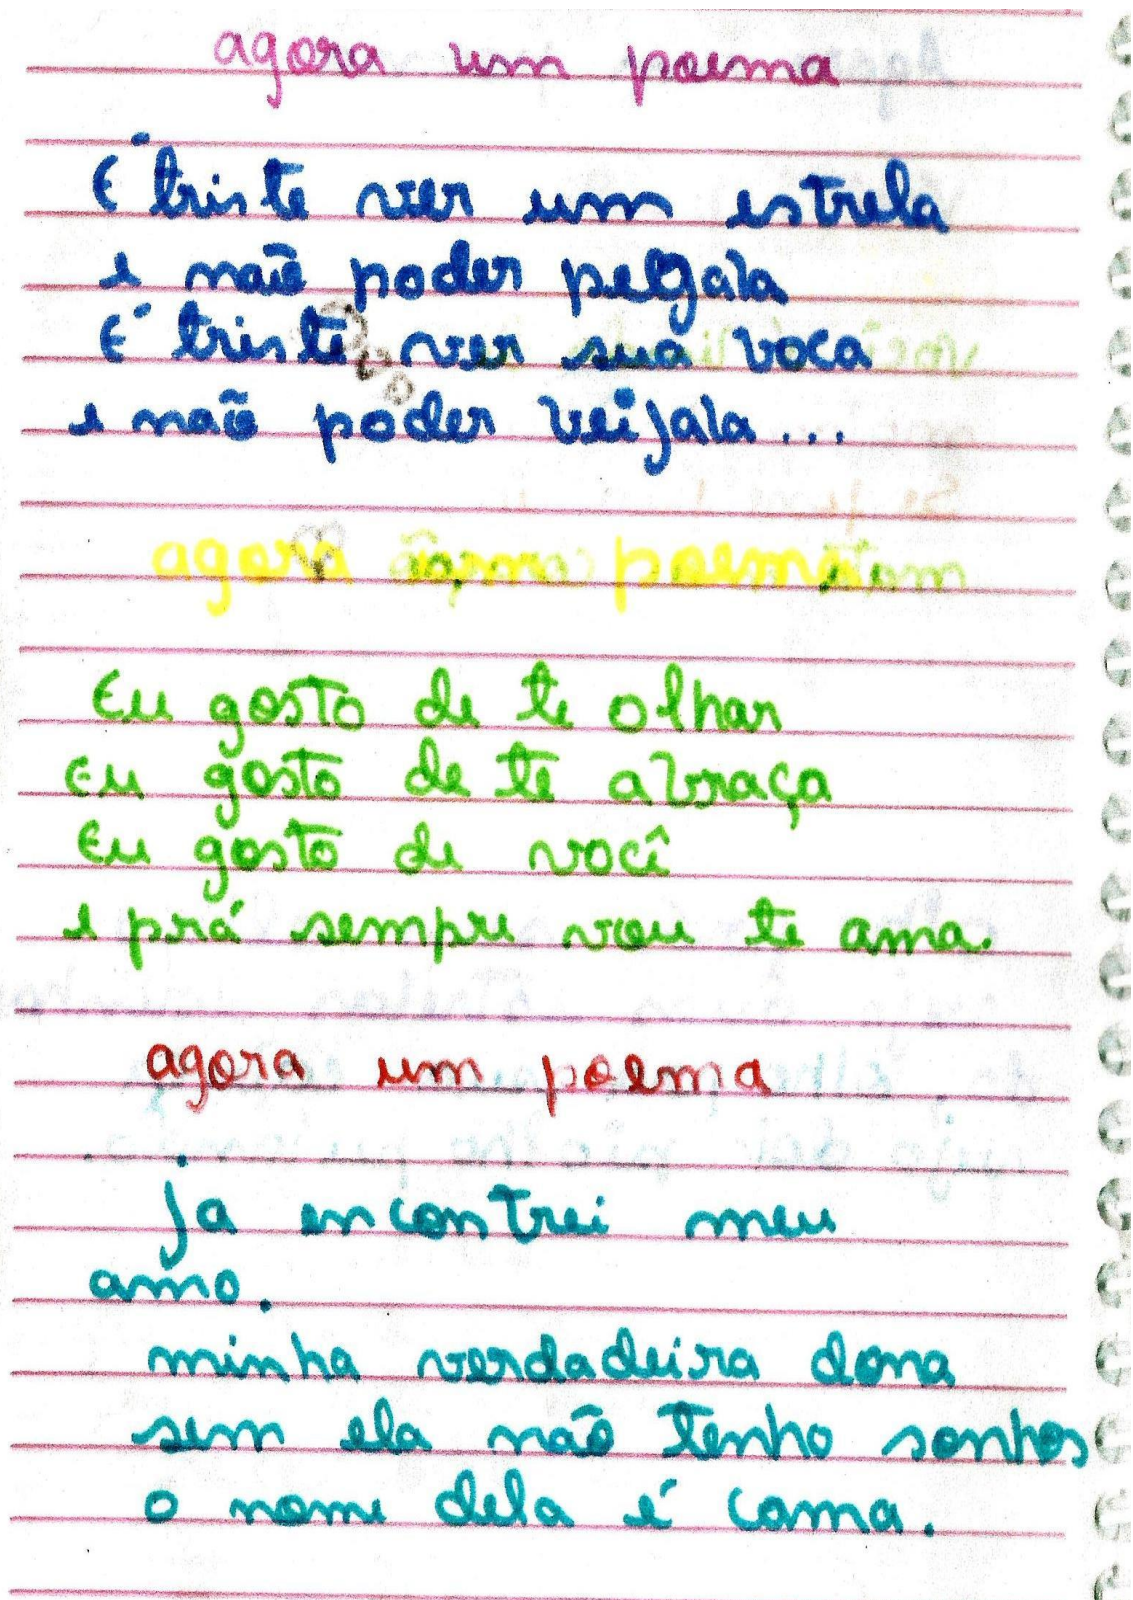 agora um poema
É triste ver um estrela
e não poder pelgala
É triste ver sua voca
e não poder veijala...
agora poema
Eu gosto de te olhar
Eu gosto de te abraça
Eu gosto de você
e prá sempre vou te ama.
agora um poema
Ja encontrei meu
amo.
minha verdadeira dona
sem ela não tenho sonhos
o nome dela é cama.